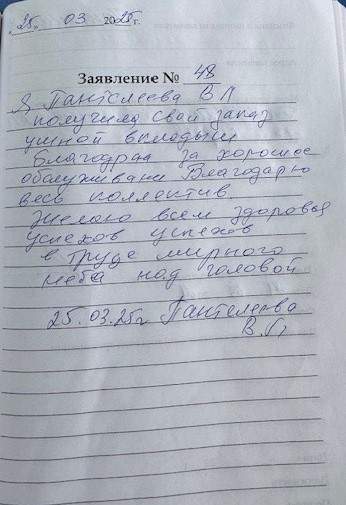 "25" 03 2025г.
Заявление № 48
Я Пантелеева В Л
получила свой заказ
ушной вкладыш
Благодраа за хорошое
обслуживани Благодарю
весь коллектив
Желаю всем здоровья
успехов успехов
в труде мирного
неба над головой
25.03.25г Пантелеева
В.Л